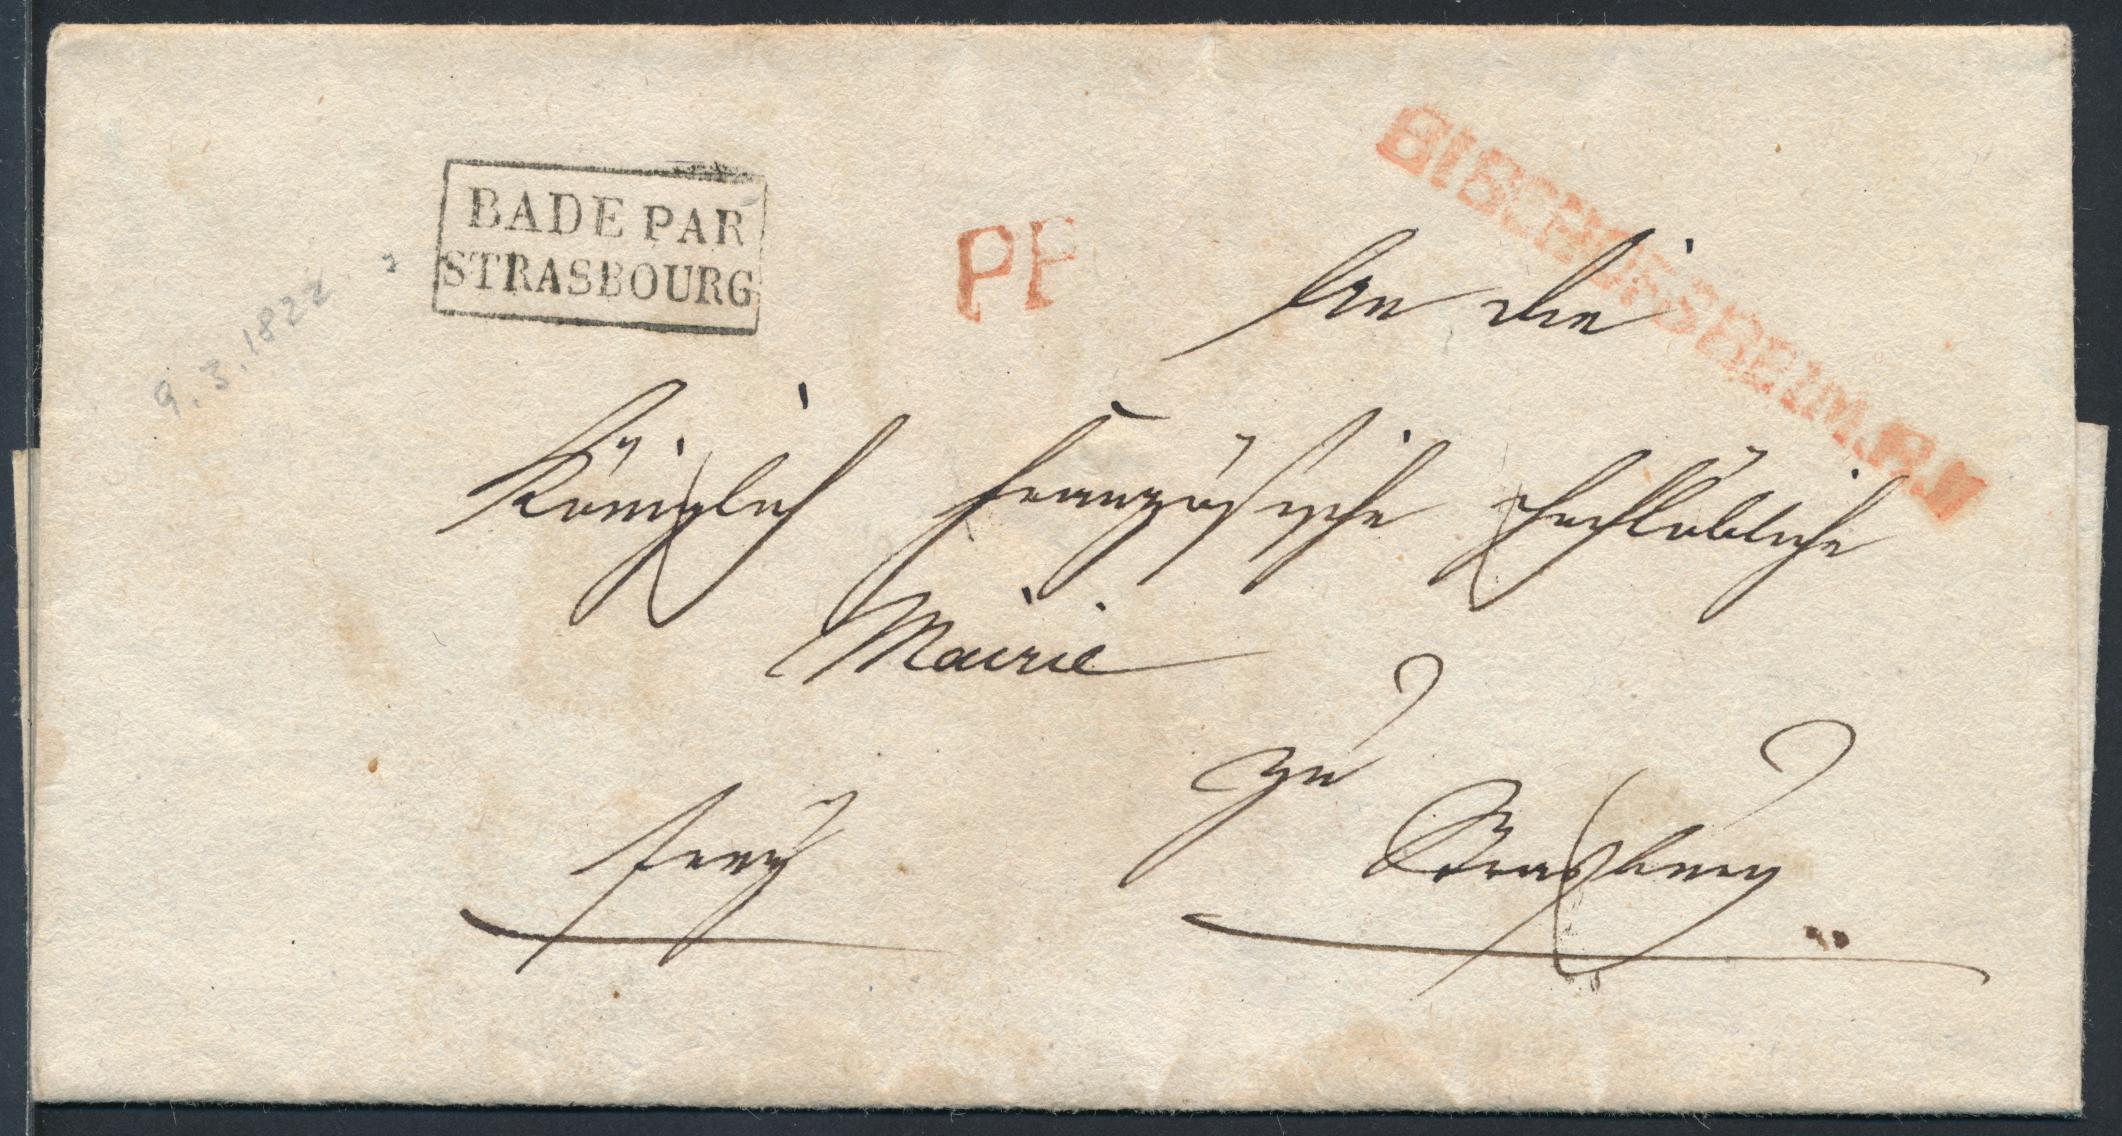 BADE PAR
STRASBOURG
PP
BISCHOFSHEIM.R.H
9.3.1822
An die
Königlich Französische Hochlöbliche
Mairie
zu
frey
Strasburg